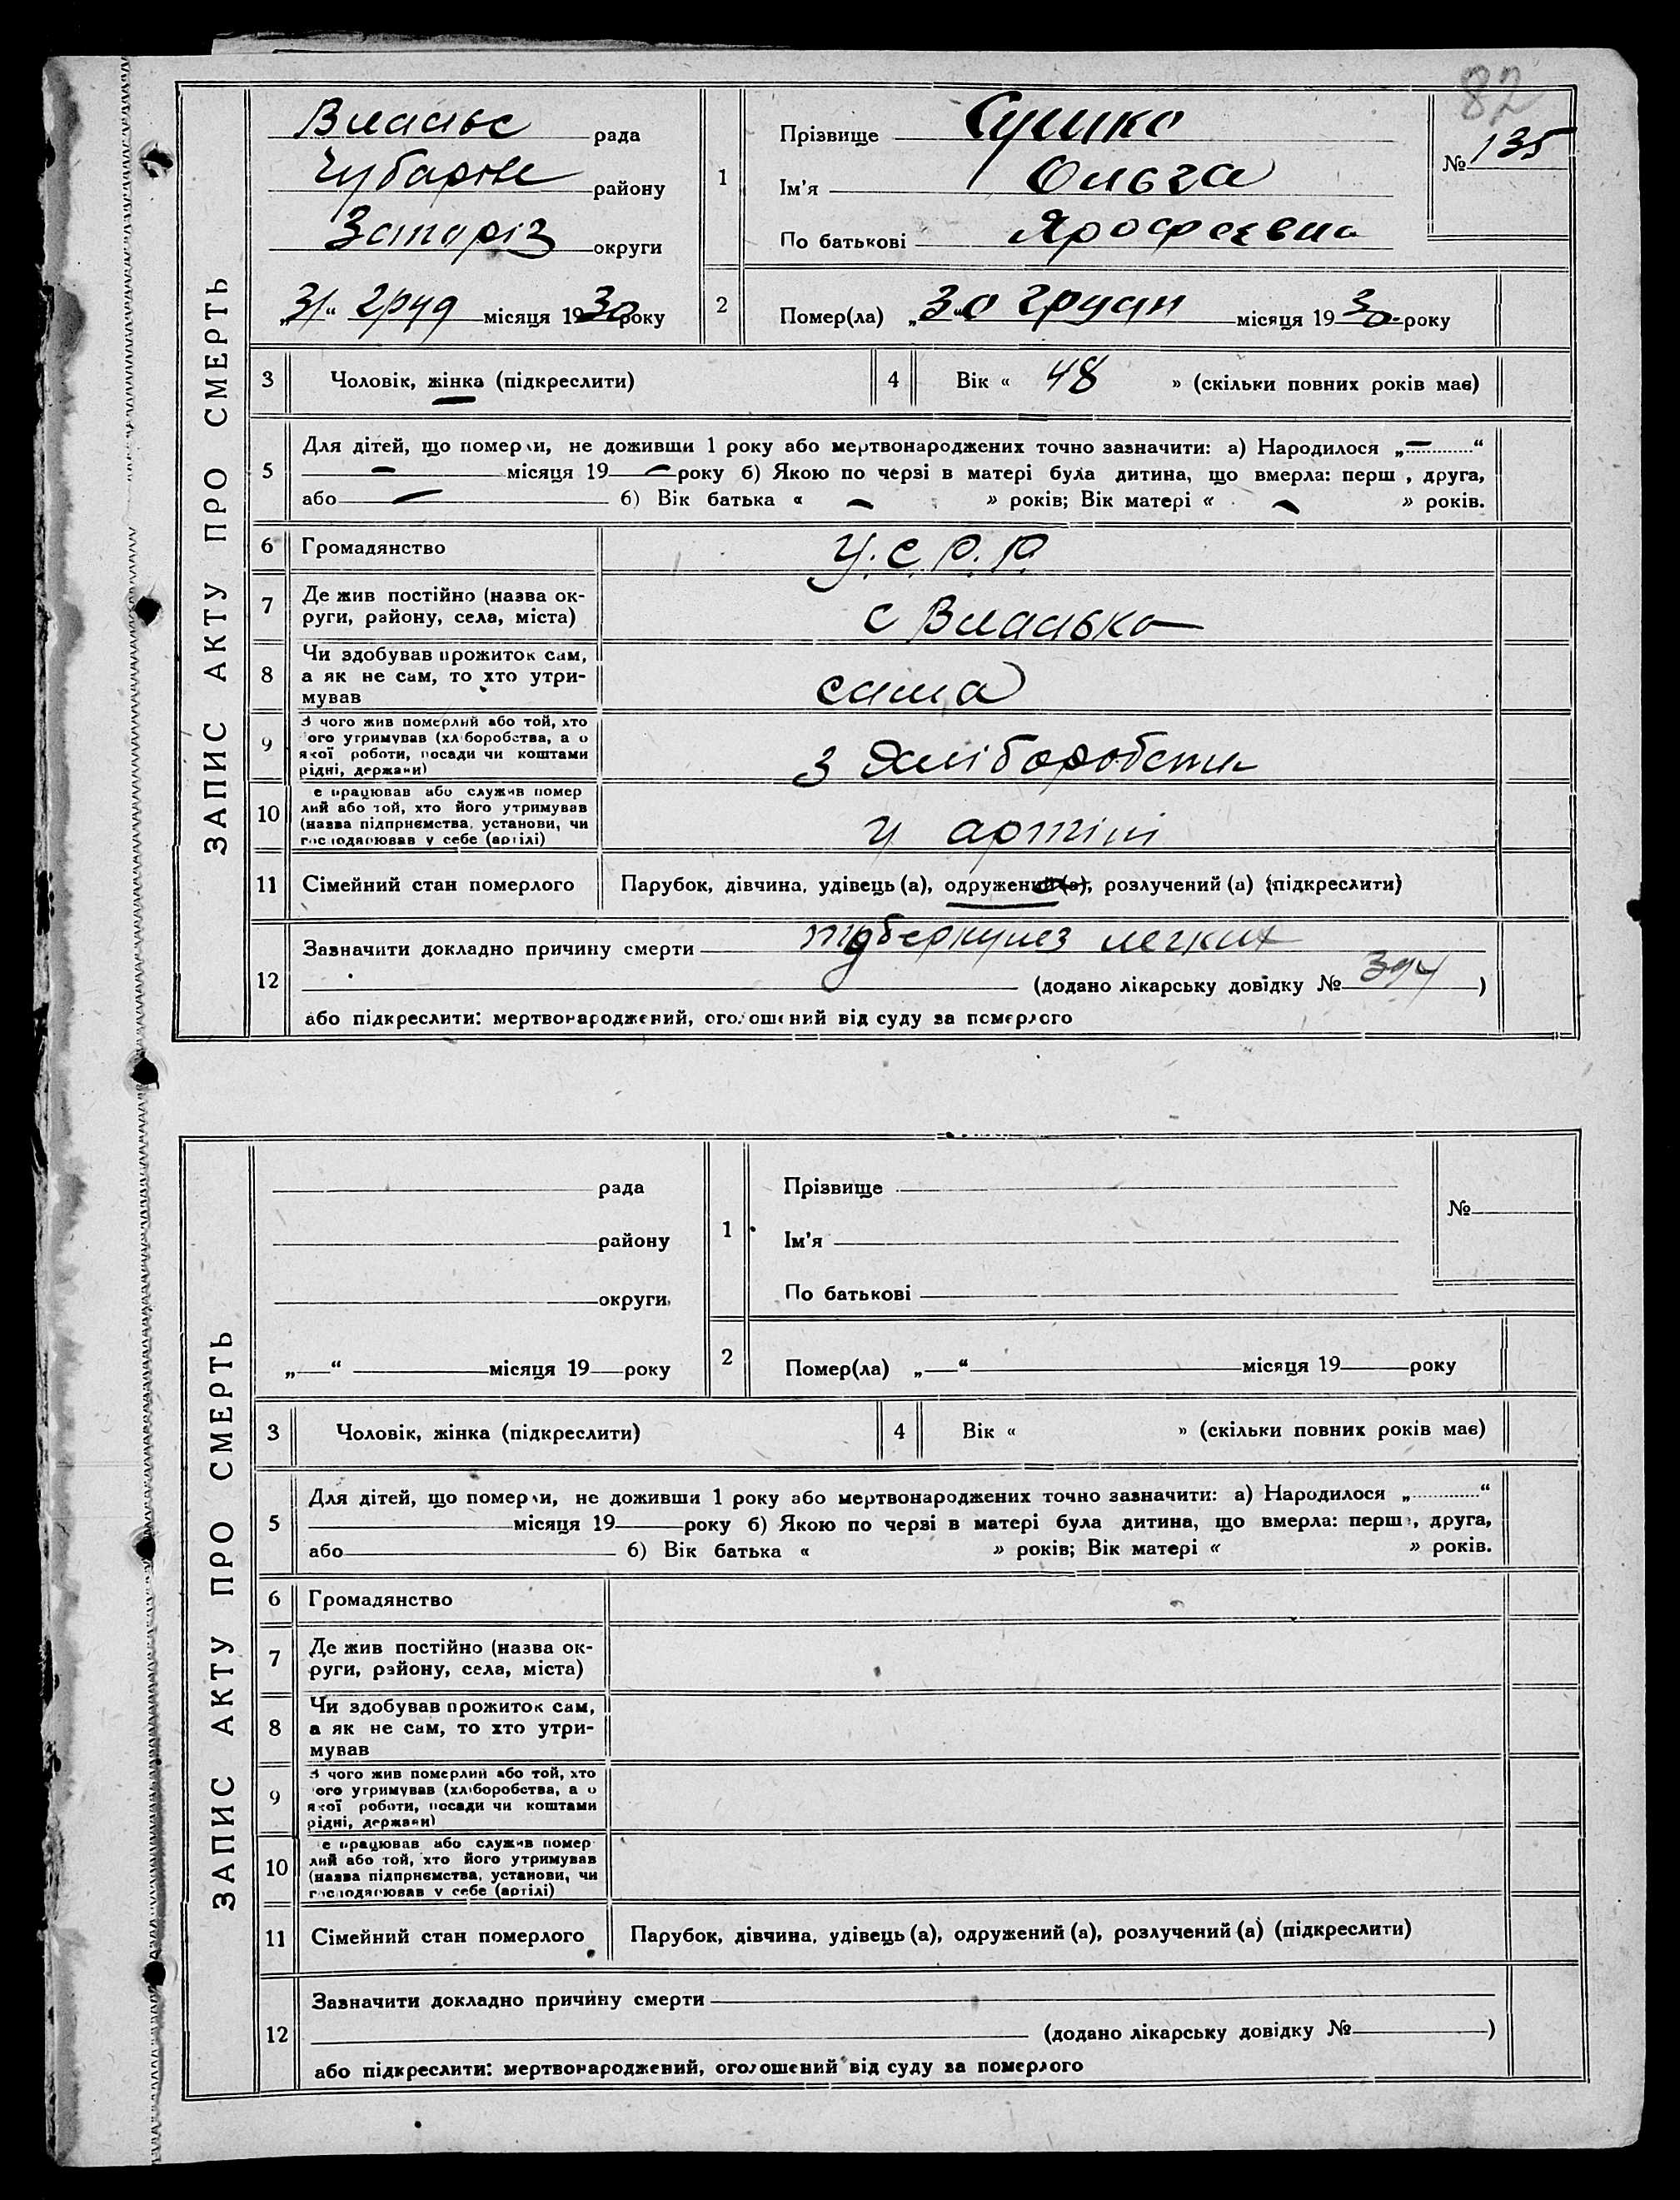 82
ЗАПИС АКТУ ПРО СМЕРТЬ
рада
Чубарівс району
Запоріз округи
„31“ груд місяця 1930 року
1
Прізвище Сушко
Ім'я Ольга
По батькові Ярофеевна
№ 135
2
Помер(ла) „30“ грудн місяця 1930 року
3 Чоловік, жінка (підкреслити)
4 Вік « 48 » (скільки повних років має)
5 Для дітей, що померли, не доживши 1 року або мертвонароджених точно зазначити: а) Народилося „—“
— місяця 19 — року б) Якою по черзі в матері була дитина, що вмерла: перш , друга,
або — б) Вік батька « — » років; Вік матері « — » років.
6 Громадянство У.С.Р.Р.
7 Де жив постійно (назва ок-
руги, району, села, міста) с
8 Чи здобував прожиток сам,
а як не сам, то хто утри-
мував сама
9 З чого жив померлий або той, хто
ого утримував (хліборобства, а о
якої роботи, посади чи коштами
рідні, держави) з хліборобств
10 е працював або служив помер
лий або той, хто його утримував
(назва підприємства, установи, чи
господарював у себе (артілі) у артілі
11 Сімейний стан померлого Парубок, дівчина, удівець (а), одружений (а), розлучений (а) (підкреслити)
12 Зазначити докладно причину смерти туберкульоз легких
(додано лікарську довідку № )
або підкреслити: мертвонароджений, оголошений від суду за померлого
ЗАПИС АКТУ ПРО СМЕРТЬ
рада
району
округи
„ “ місяця 19 року
1
Прізвище
Ім'я
По батькові
№
2
Помер(ла) „ “ місяця 19 року
3 Чоловік, жінка (підкреслити)
4 Вік « » (скільки повних років має)
5 Для дітей, що померли, не доживши 1 року або мертвонароджених точно зазначити: а) Народилося „ “
місяця 19 року б) Якою по черзі в матері була дитина, що вмерла: перш , друга,
або б) Вік батька « » років; Вік матері « » років.
6 Громадянство
7 Де жив постійно (назва ок-
руги, району, села, міста)
8 Чи здобував прожиток сам,
а як не сам, то хто утри-
мував
9 З чого жив померлий або той, хто
ого утримував (хліборобства, а о
якої роботи, посади чи коштами
рідні, держави)
10 е працював або служив помер
лий або той, хто його утримував
(назва підприємства, установи, чи
господарював у себе (артілі)
11 Сімейний стан померлого Парубок, дівчина, удівець (а), одружений (а), розлучений (а) (підкреслити)
12 Зазначити докладно причину смерти
(додано лікарську довідку № )
або підкреслити: мертвонароджений, оголошений від суду за померлого